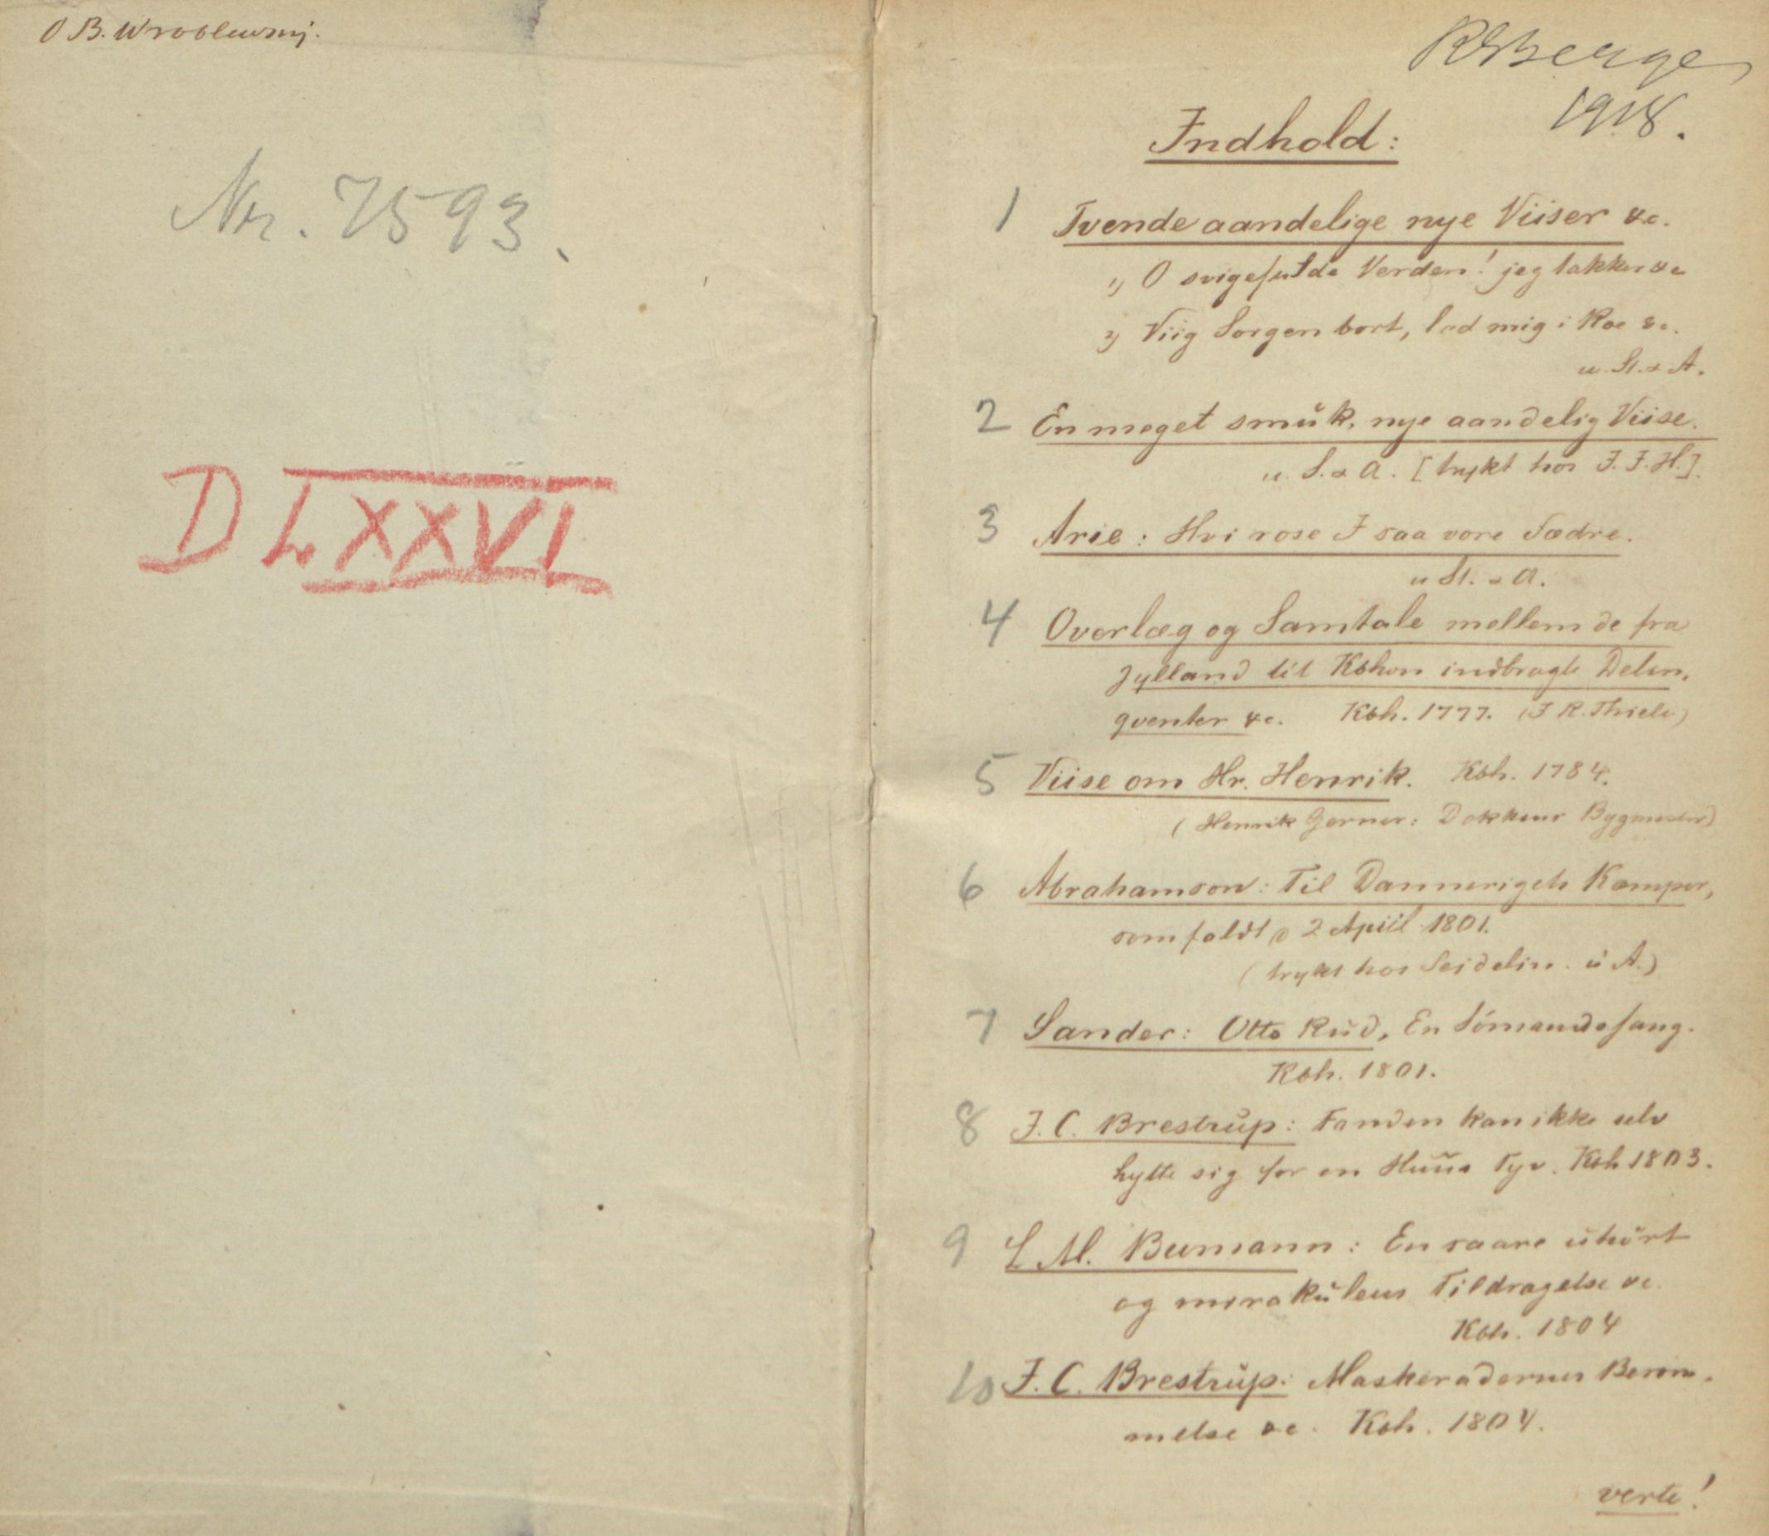 O B. Wroblewsky.
Nr. 7593.
D LXXVI
RBerge
1918.
Indhold:
1 Tvende aandelige nye Viiser &c.
1) O svigefulde Verden! jeg takker &c
2) Viig Sorgen bort, lad mig i Roe &c.
u. St. & A.
2 En meget smuk, nye aandelig Viise.
u. S. & A. [trykt hos J. J. H.].
3 Arie: Hvi rose I saa vore Fædre.
u St. & A.
4 Overlæg og Samtale mellem de fra
Jylland til Kbhvn indbragte Delin,
qventer &c. Kbh. 1777. (J R. Thiele)
5 Viise om Hr. Henrik. Kbh. 1784.
(Henrik Gerner: Dokkens Bygmester)
6 Abrahamson: Til Dannerigets Kæmper,
som faldt d 2 April 1801.
(trykt hos Seidelin. u A.)
7 Sander: Otto Rud, En Sömandssang.
Kbh. 1801.
8 J. C. Brestrup: Fanden kan ikke selv
hytte sig for en Huus Tyv. Kbh 1803.
9 L M. Bumann: En saare uhört
og mirakuleus Tildragelse &c.
Kbh. 1804
10 J. C. Brestrup: Maskeradernes Beröm.
melse &c. Kbh. 1804.
verte!